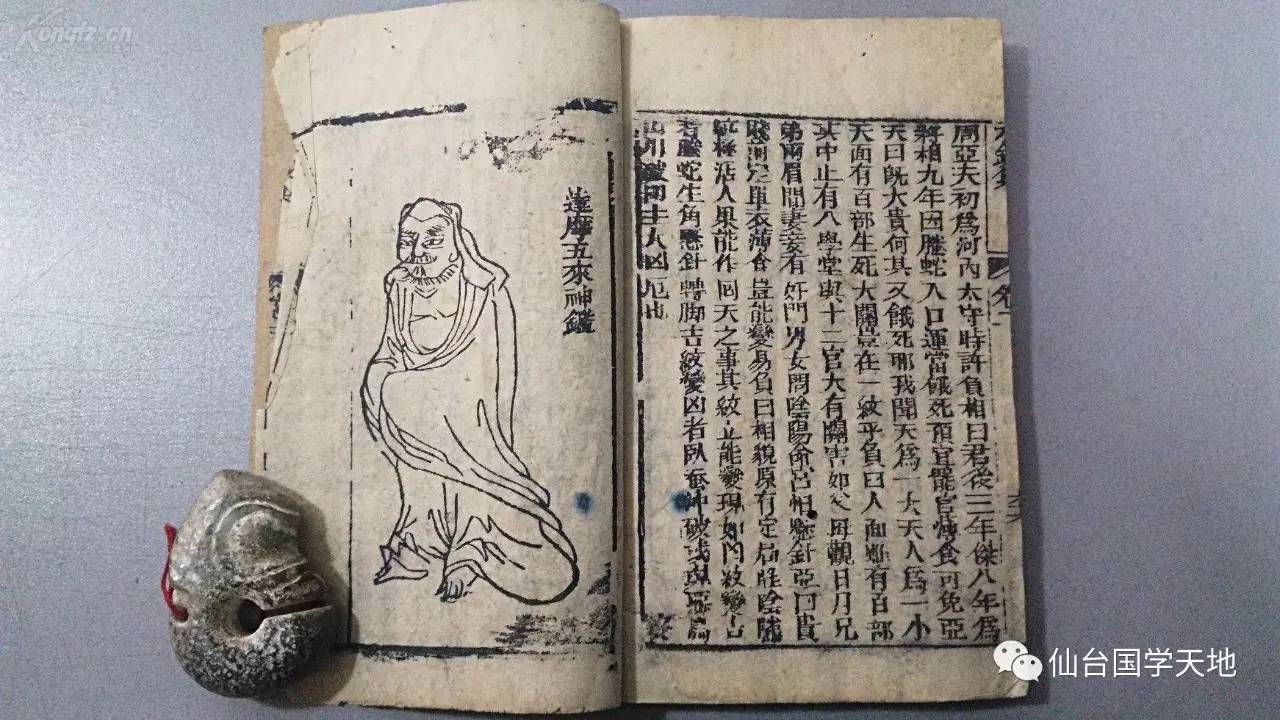 周亞夫初爲河內太守時許負相曰君後三年侯八年爲
將相九年因螣蛇入口運當餓死預宜罷官 食可免亞
夫曰旣大貴何其又餓死耶我聞天爲一大天人爲一小
天面有百部生死大關豈在一紋乎負曰人面雖有百部
其中止有八學堂與十二官大有關害如父母觀日月兄
弟兩眉間妻妾有奸門男女問陰陽命宮怕懸針亞曰貴
賤前定單衣薄食豈能變易負曰相貌原有定局唯陰隲
紋極活人果能作囘天之事其紋立能變現如凶紋變吉
者螣蛇生角懸針轉脚吉紋變凶者臥蚕冲破
主人凶厄也
達摩五來神鑑
Kongfz.cn
仙台国学天地